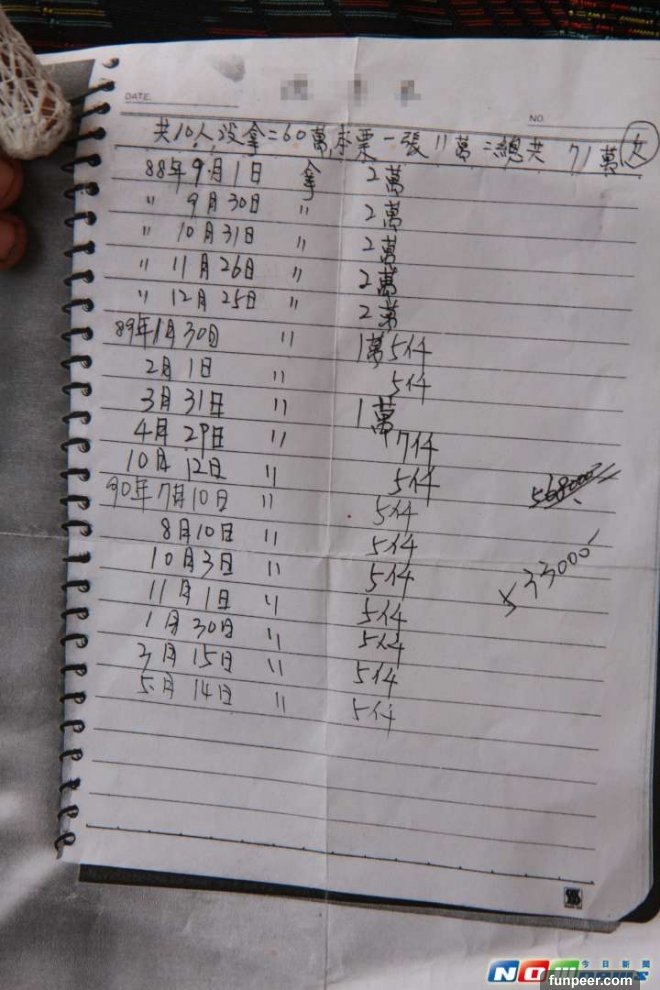 DATE:
NO.
共10人沒拿=60萬,本票一張11萬=總共71萬 女
88年9月1日 拿 2萬
〃 9月30日 〃 2萬
〃 10月31日 〃 2萬
〃 11月26日 〃 2萬
〃 12月25日 〃 2萬
89年1月30日 〃 1萬5仟
2月1日 〃 5仟
3月31日 〃 1萬
4月29日 〃 7仟
10月12日 〃 5仟
568000
90年7月10日 〃 5仟
8月10日 〃 5仟
533000
10月3日 〃 5仟
11月1日 〃 5仟
1月30日 〃 5仟
3月15日 〃 5仟
5月14日 〃 5仟
NOWnews 今日新聞
funpeer.com